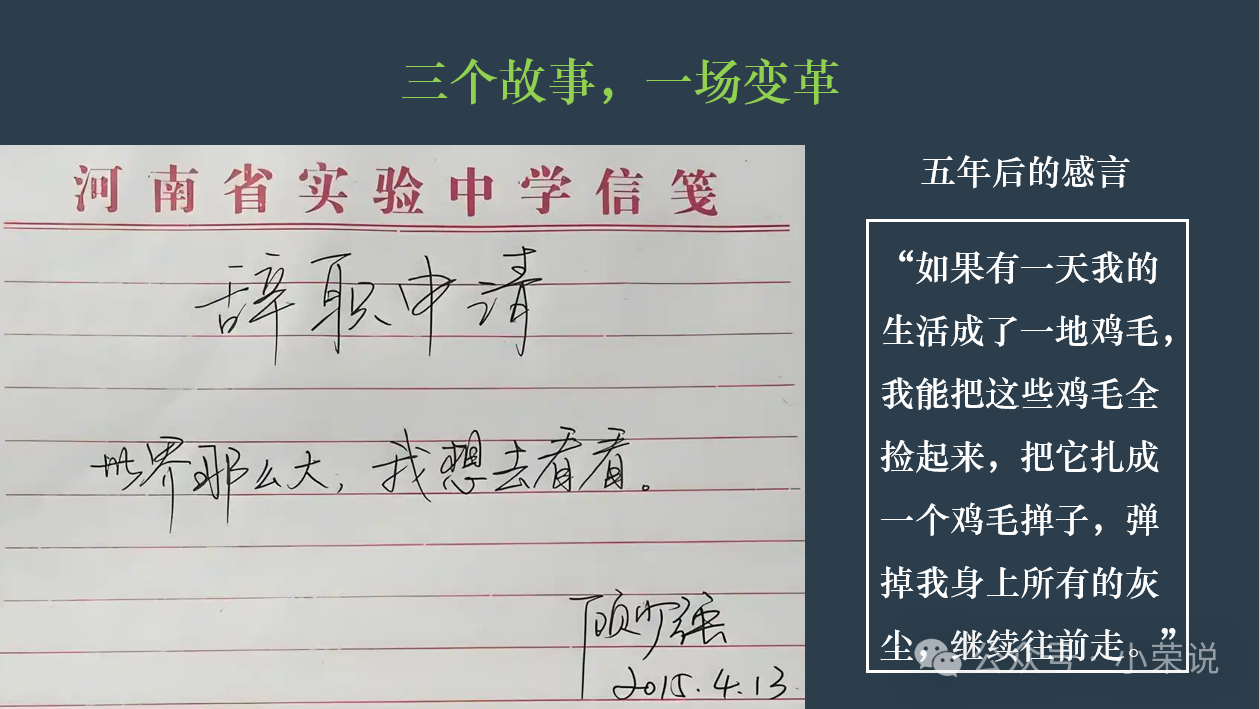 三个故事，一场变革
河南省实验中学信笺
辞职申请
世界那么大，我想去看看。
顾少强
2015.4.13
五年后的感言
“如果有一天我的
生活成了一地鸡毛，
我能把这些鸡毛全
捡起来，把它扎成
一个鸡毛掸子，弹
掉我身上所有的灰
尘，继续往前走。”
公众号 小荣说